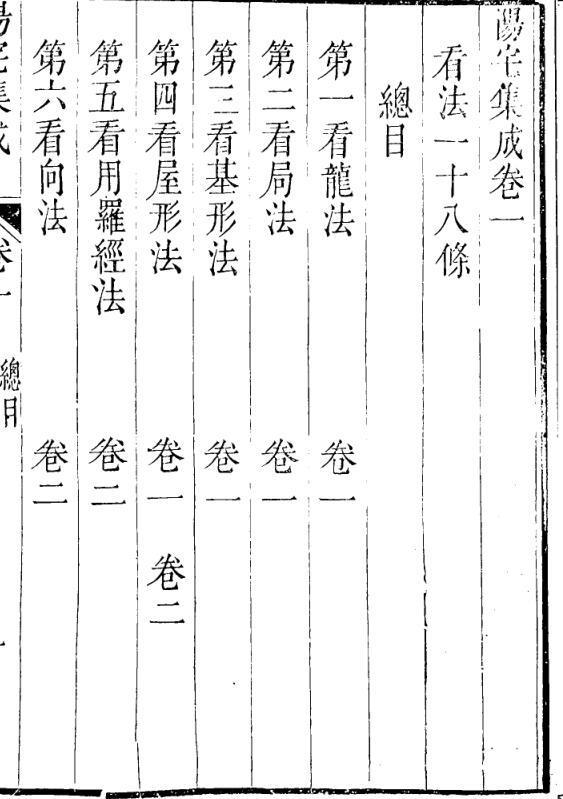 陽宅集成卷一
看法一十八條
總目
第一看龍法 卷一
第二看局法 卷一
第三看基形法 卷一
第四看屋形法 卷一 卷二
第五看用羅經法 卷二
第六看向法 卷二
陽宅集成 卷一 總目 一